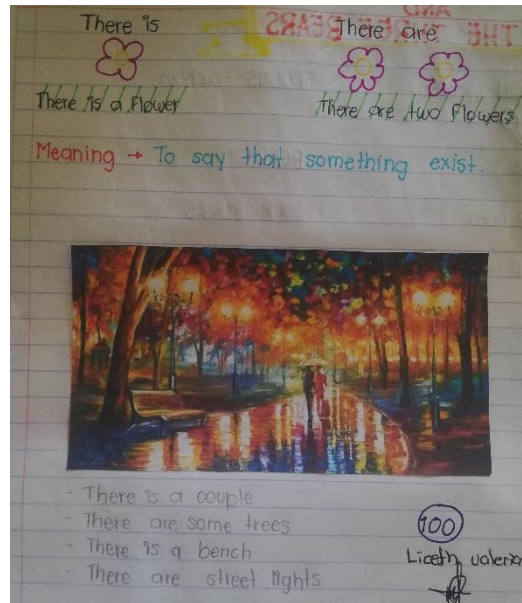 There is
There are
There is a Flower
There are two Flowers
Meaning → To say that something exist.
- There is a couple
- There are some trees
- There is a bench
- There are street lights
100
Liceth Valeria